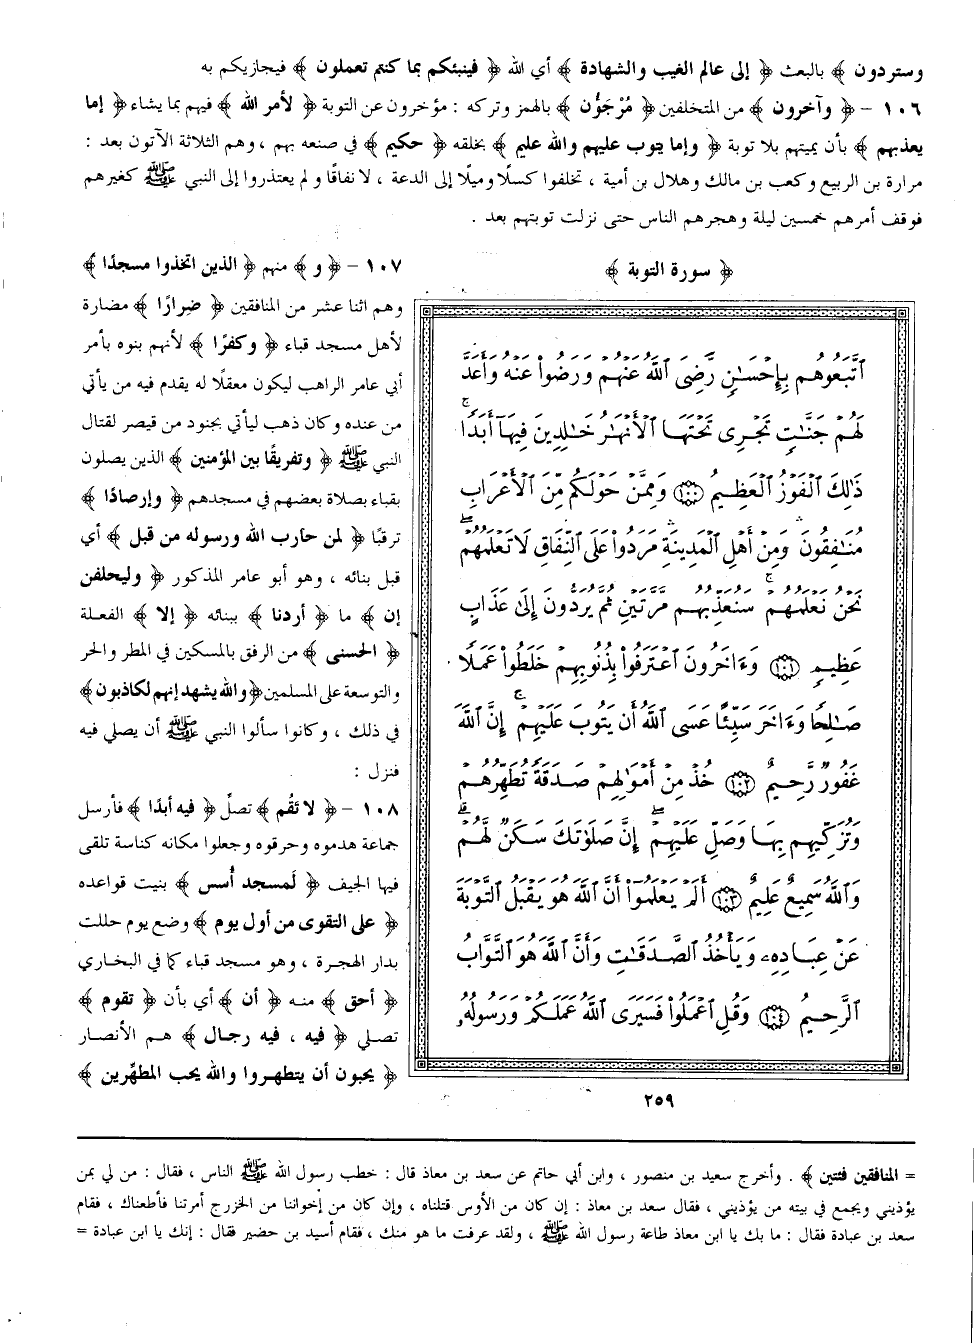 وستردون ﴾ بالبعث ﴿ إلى عالم الغيب والشهادة ﴾ أي الله ﴿ فينبئكم بما كنتم تعملون ﴾ فيجازيكم به
١٠٦ - ﴿ وآخرون ﴾ من المتخلفين ﴿ مُرْجَؤُن ﴾ بالهمز وتركه : مؤخرون عن التوبة ﴿ لأمر الله ﴾ فيهم بما يشاء ﴿ إما
يعذبهم ﴾ بأن يميتهم بلا توبة ﴿ وإما يتوب عليهم والله عليم ﴾ بخلقه ﴿ حكيم ﴾ في صنعه بهم ، وهم الثلاثة الآتون بعد :
مرارة بن الربيع وكعب بن مالك وهلال بن أمية ، تخلفوا كسلًا وميلًا إلى الدعة ، لا نفاقًا ولم يعتذروا إلى النبي ﷺ كغيرهم
فوقف أمرهم خمسين ليلة وهجرهم الناس حتى نزلت توبتهم بعد .
﴿ سورة التوبة ﴾
ٱتَّبَعُوهُم بِإِحْسَٰنٍ رَّضِىَ ٱللَّهُ عَنْهُمْ وَرَضُوا۟ عَنْهُ وَأَعَدَّ
لَهُمْ جَنَّٰتٍ تَجْرِى تَحْتَهَا ٱلْأَنْهَٰرُ خَٰلِدِينَ فِيهَآ أَبَدًا ۚ
ذَٰلِكَ ٱلْفَوْزُ ٱلْعَظِيمُ ١٠٠ وَمِمَّنْ حَوْلَكُم مِّنَ ٱلْأَعْرَابِ
مُنَٰفِقُونَ ۖ وَمِنْ أَهْلِ ٱلْمَدِينَةِ ۖ مَرَدُوا۟ عَلَى ٱلنِّفَاقِ لَا تَعْلَمُهُمْ ۖ
نَحْنُ نَعْلَمُهُمْ ۚ سَنُعَذِّبُهُم مَّرَّتَيْنِ ثُمَّ يُرَدُّونَ إِلَىٰ عَذَابٍ
عَظِيمٍ ١٠١ وَءَاخَرُونَ ٱعْتَرَفُوا۟ بِذُنُوبِهِمْ خَلَطُوا۟ عَمَلًا
صَٰلِحًا وَءَاخَرَ سَيِّئًا عَسَى ٱللَّهُ أَن يَتُوبَ عَلَيْهِمْ ۚ إِنَّ ٱللَّهَ
غَفُورٌ رَّحِيمٌ ١٠٢ خُذْ مِنْ أَمْوَٰلِهِمْ صَدَقَةً تُطَهِّرُهُمْ
وَتُزَكِّيهِم بِهَا وَصَلِّ عَلَيْهِمْ ۖ إِنَّ صَلَوٰتَكَ سَكَنٌ لَّهُمْ ۗ
وَٱللَّهُ سَمِيعٌ عَلِيمٌ ١٠٣ أَلَمْ يَعْلَمُوٓا۟ أَنَّ ٱللَّهَ هُوَ يَقْبَلُ ٱلتَّوْبَةَ
عَنْ عِبَادِهِۦ وَيَأْخُذُ ٱلصَّدَقَٰتِ وَأَنَّ ٱللَّهَ هُوَ ٱلتَّوَّابُ
ٱلرَّحِيمُ ١٠٤ وَقُلِ ٱعْمَلُوا۟ فَسَيَرَى ٱللَّهُ عَمَلَكُمْ وَرَسُولُهُۥ
٢٥٩
١٠٧ - ﴿ و ﴾ منهم ﴿ الذين اتخذوا مسجدًا ﴾
وهم اثنا عشر من المنافقين ﴿ ضرارًا ﴾ مضارة
لأهل مسجد قباء ﴿ وكفرًا ﴾ لأنهم بنوه بأمر
أبي عامر الراهب ليكون معقلًا له يقدم فيه من يأتي
من عنده وكان ذهب ليأتي بجنود من قيصر لقتال
النبي ﷺ ﴿ وتفريقًا بين المؤمنين ﴾ الذين يصلون
بقباء بصلاة بعضهم في مسجدهم ﴿ وإرصادًا ﴾
ترقبًا ﴿ لمن حارب الله ورسوله من قبل ﴾ أي
قبل بنائه ، وهو أبو عامر المذكور ﴿ وليحلفن
إن ﴾ ما ﴿ أردنا ﴾ ببنائه ﴿ إلا ﴾ الفعلة
﴿ الحسنى ﴾ من الرفق بالمسكين في المطر والحر
والتوسعة على المسلمين ﴿ والله يشهد إنهم لكاذبون ﴾
في ذلك ، وكانوا سألوا النبي ﷺ أن يصلي فيه
فنزل :
١٠٨ - ﴿ لا تقم ﴾ تصلّ ﴿ فيه أبدًا ﴾ فأرسل
جماعة هدموه وحرقوه وجعلوا مكانه كناسة تلقى
فيها الجيف ﴿ لَمسجد أُسس ﴾ بنيت قواعده
﴿ على التقوى من أول يوم ﴾ وضع يوم حللت
بدار الهجرة ، وهو مسجد قباء كما في البخاري
﴿ أحق ﴾ منه ﴿ أن ﴾ أي بأن ﴿ تقوم ﴾
تصلي ﴿ فيه ، فيه رجال ﴾ هم الأنصار
﴿ يحبون أن يتطهروا والله يحب المطهّرين ﴾
= المنافقين فئتين ﴾ . وأخرج سعيد بن منصور ، وابن أبي حاتم عن سعد بن معاذ قال : خطب رسول الله ﷺ الناس ، فقال : من لي بمن
يؤذيني ويجمع في بيته من يؤذيني ، فقال سعد بن معاذ : إن كان من الأوس قتلناه ، وإن كان من إخواننا من الخزرج أمرتنا فأطعناك ، فقام
سعد بن عبادة فقال : ما بك يا ابن معاذ طاعة رسول الله ﷺ ، ولقد عرفت ما هو منك ، فقام أسيد بن حضير فقال : إنك يا ابن عبادة =